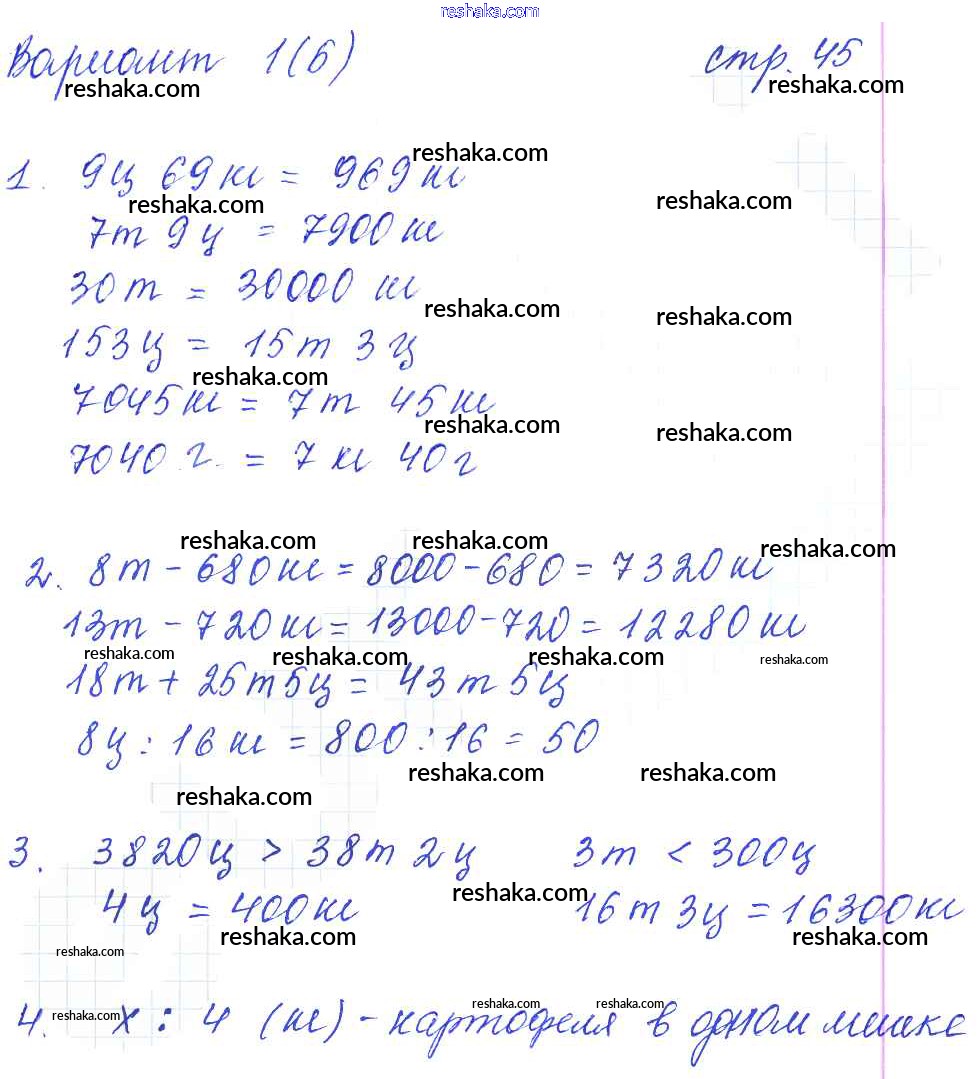 reshaka.com
Вариант 1(6) стр. 45
reshaka.com reshaka.com
reshaka.com
1. 9ц 69кг = 969кг
reshaka.com reshaka.com
7т 9ц = 7900кг
30т = 30000 кг
reshaka.com reshaka.com
153ц = 15т 3ц
reshaka.com
7045кг = 7т 45кг
reshaka.com reshaka.com
7040 г. = 7 кг 40г
reshaka.com reshaka.com reshaka.com
2. 8т - 680кг = 8000 - 680 = 7320кг
13т - 720кг = 13000 - 720 = 12280кг
reshaka.com reshaka.com reshaka.com reshaka.com
18т + 25т5ц = 43т 5ц
8ц : 16кг = 800 : 16 = 50
reshaka.com reshaka.com
reshaka.com
3. 3820ц > 38т 2ц 3т < 300ц
reshaka.com
4ц = 400кг 16т 3ц = 16300кг
reshaka.com reshaka.com
reshaka.com
reshaka.com reshaka.com
reshaka.com
4. х : 4 (кг) - картофеля в одном мешке